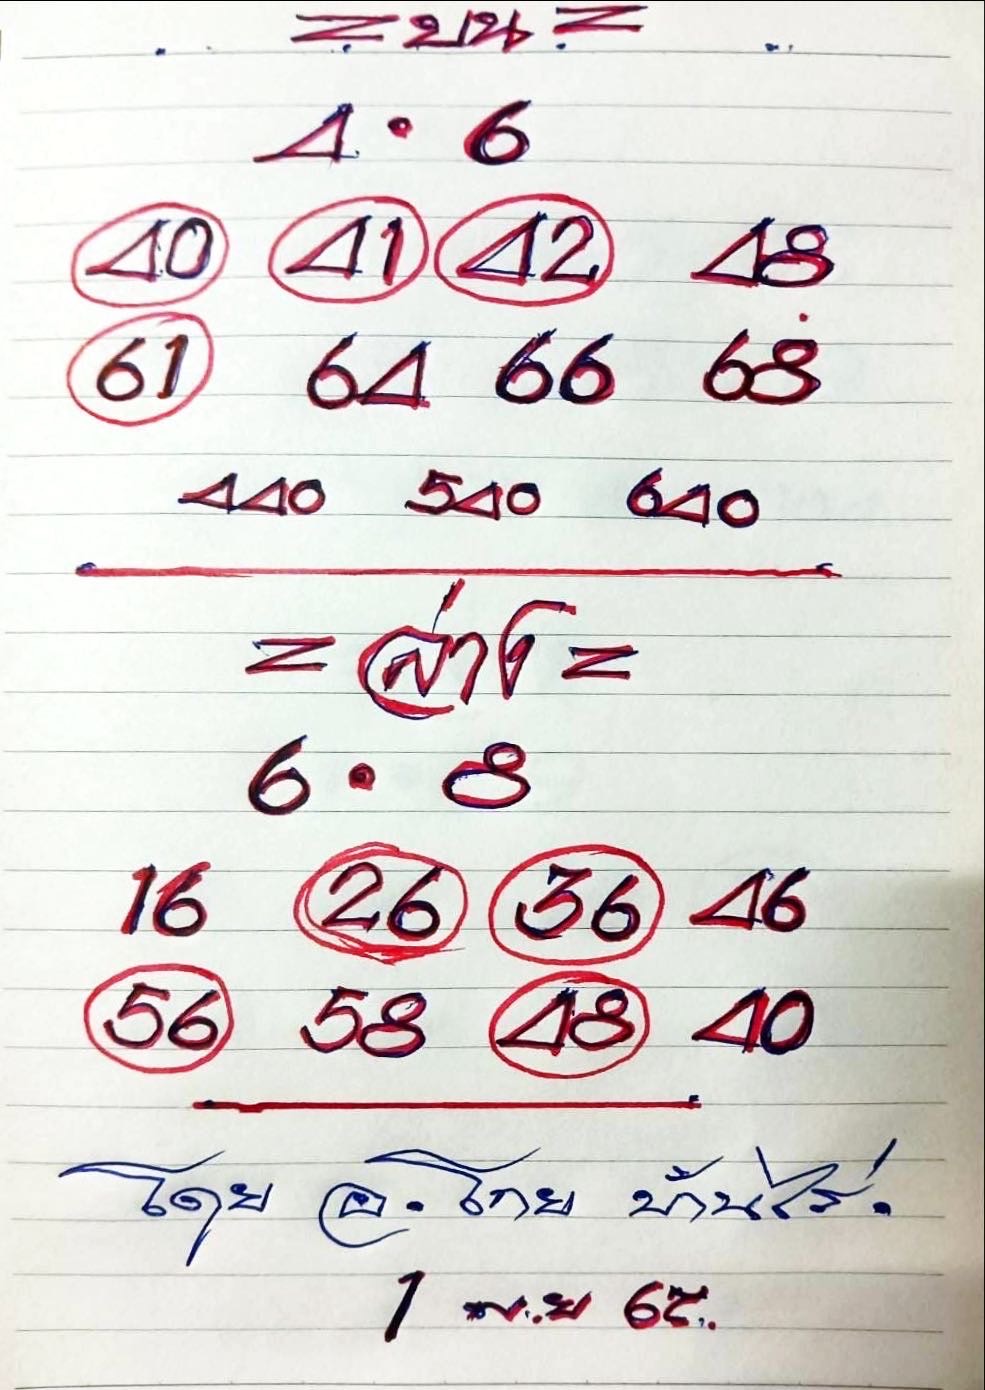 = บน =
4 • 6
40 41 42 48
61 64 66 68
440 540 640
= ล่าง =
6 • 8
16 26 36 46
56 58 48 40
โดย อ. โกย บ้านไร่.
1 พ.ย 68.